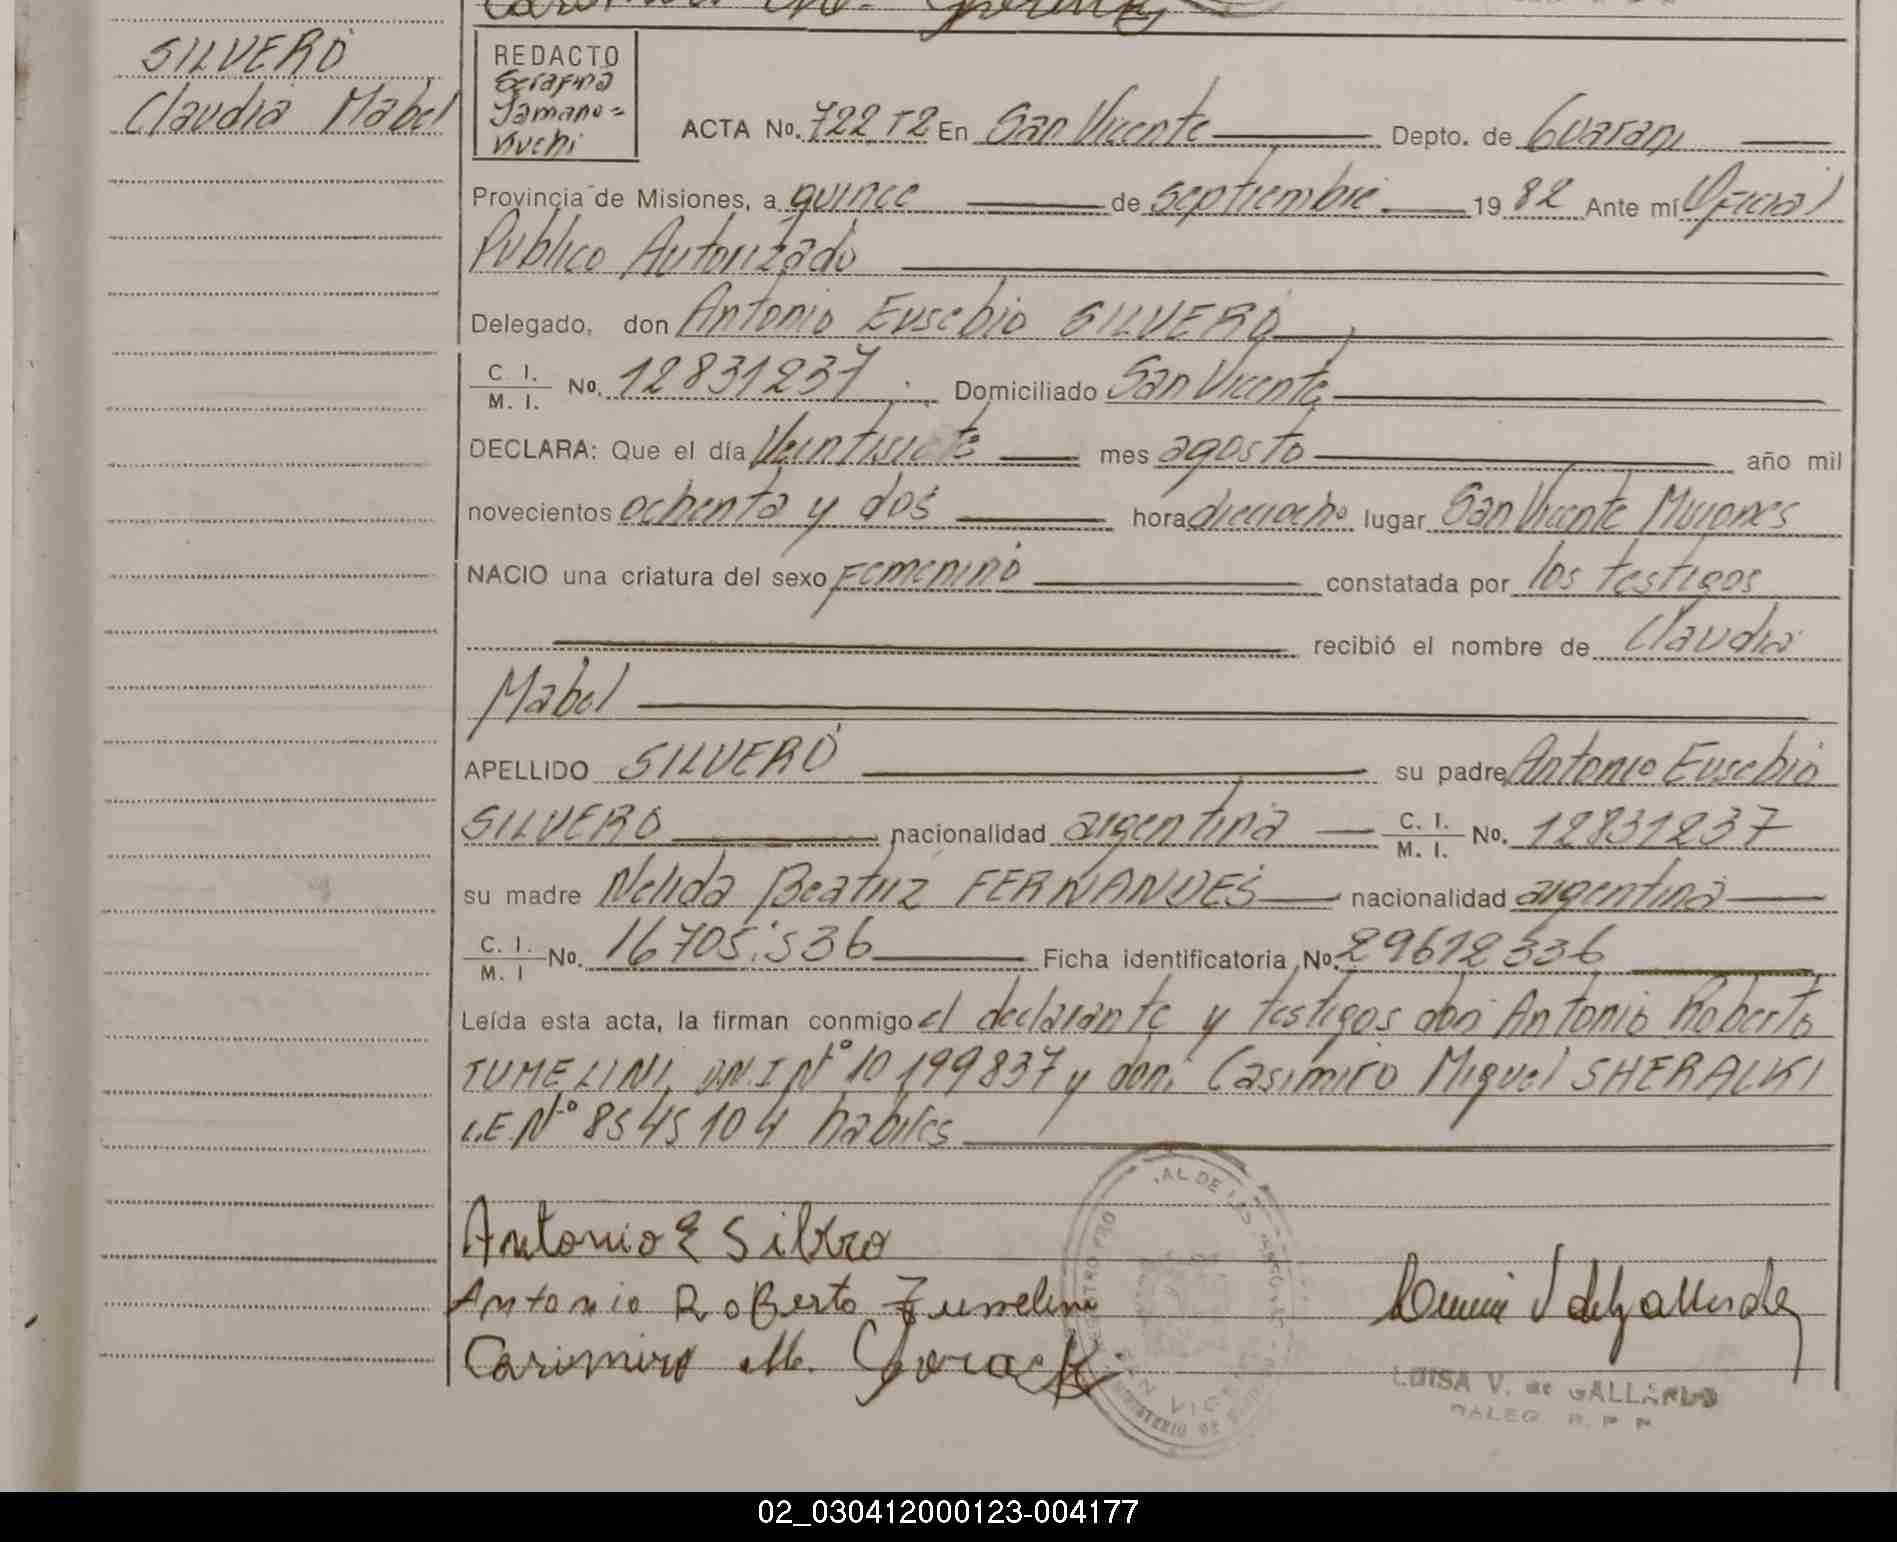 SILVERO
Claudia Mabel
REDACTO
Serafina
Yamano=
Kuchi
ACTA No. 722 T2 En San Vicente Depto. de Guarani
Provincia de Misiones, a quince de septiembre 19 82 Ante mí Oficial
Publico Autorizado
Delegado, don Antonio Eusebio SILVERO
C. I. / M. I. No. 12831237. Domiciliado San Vicente
DECLARA: Que el día Veintisiete mes agosto año mil
novecientos ochenta y dos hora dieciocho lugar San Vicente Misiones
NACIO una criatura del sexo femenino constatada por los testigos
recibió el nombre de Claudia
Mabel
APELLIDO SILVERO su padre Antonio Eusebio
SILVERO nacionalidad argentina C. I. / M. I. No. 12831237
su madre Nelida Beatriz FERNANDES nacionalidad argentina
C. I. / M. I No. 16705.536 Ficha identificatoria No. 29612336
Leída esta acta, la firman conmigo el declarante y testigos don Antonio Roberto
TUMELINI, D.N.I Nº 10.199837 y don Casimiro Miguel SHERALKI
L.E Nº 8545104 habiles
Antonio E Silvero
Antonio RoBerto Tumelini
Casimiro M.
LUISA V. de GALLARDO
SAN VICENTE
02_030412000123-004177